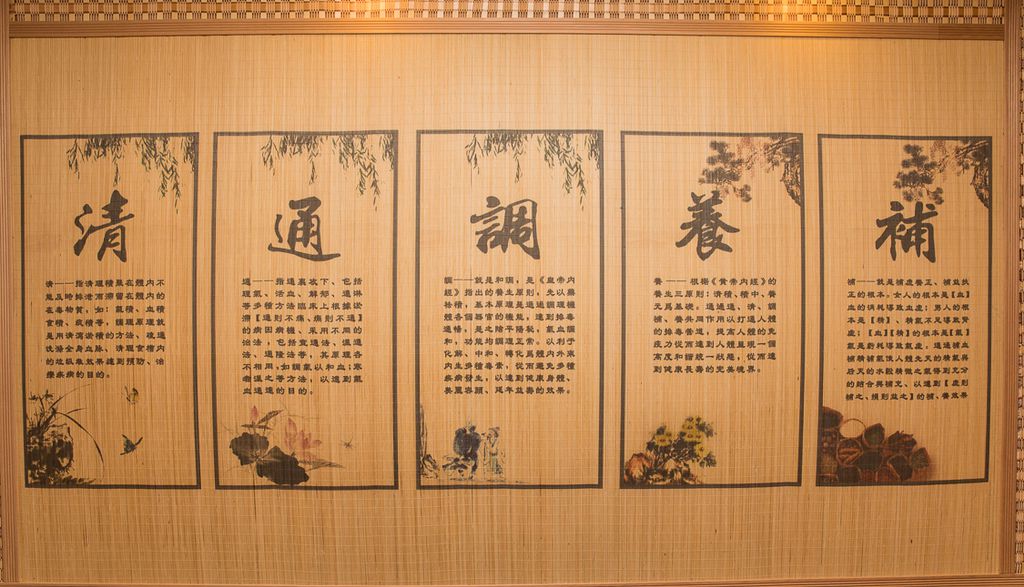 清
清——指清理積滯在體內不
能及時排泄而滯留在體內的
有毒物質。如：氣積、血積
食積、痰積等，調理原理就
是用清瀉淤積的方法、疏通
洗滌全身血脉、清理
的垃圾 效果達到預防、治
療疾病的目的。
通
通——指通裏攻下、包括
理氣、活血、解郁、通淋
等多種方法，臨床上根據淤
滯【通則不痛、痛則不通】
的病因病機、采用不同的
治法，包括通氣法、溫通
法、通陰法等，其原理各
不相用，如調氣以和血；寒
者溫之等方法，以達到氣
血通達的目的。
調
調——就是和調，是《黃帝內
經》指出的養生原則，先以
積，基本原理是通過調理機
體各個器官的機能，達到排毒
通暢，是之陰平陽秘、氣血調
和，功能均調理正常。以利于
化解、中和、轉化爲體內外來
內生多種毒素，從而避免多種
疾病發生，以達到健康身體、
美麗容顏、延年益壽的效果。
養
養——根據《黃帝內經》的
養生三原則：清積、中、養
元爲基礎。通過通、清、調
補、養共同作用以打通人體
的排毒管道，提高人體的免
疫力從而達到人體呈現一個
高度和諧統一狀態，從而達
到健康長壽的完美境界。
補
補——就是補虛養正、補益扶
正的根本。女人的根本是【血】
血的耗導致血虛；男人的根
本是【精】、精氣不足導致腎
虛；【血】【精】的根本是【氣】
氣是耗導致氣虛。先天的根
補氣俄人體先天的精氣與
后天的水穀精微之氣得到充分
的結合與補充、以達到【虛則
補之、損則益之】的補、養效果